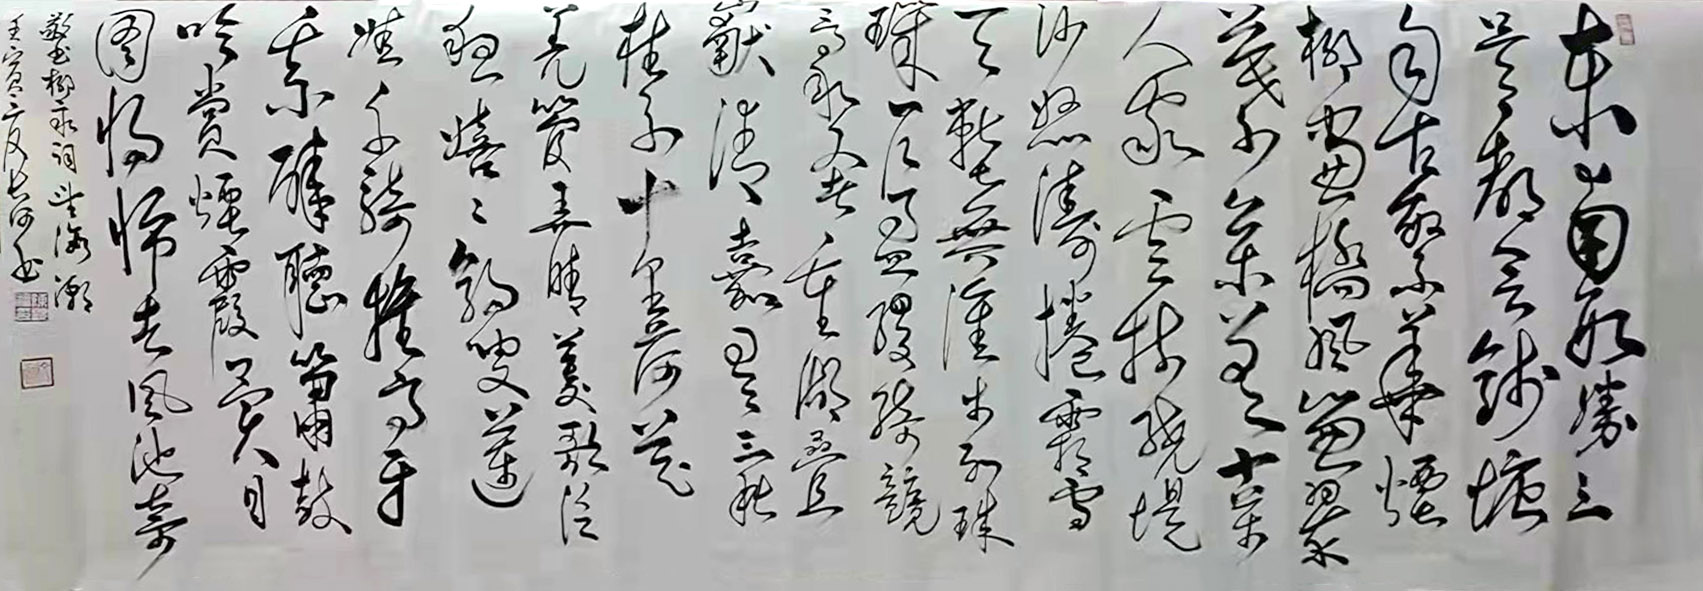 東南形勝三
吴都會錢塘
自古繁華煙
柳畫橋風簾翠
幕參差十萬
人家雲樹繞堤
沙怒濤捲霜雪
天塹無涯市列珠
璣户盈羅綺競
豪奢重湖疊
巘清嘉有三秋
桂子十里荷花
羌管弄晴菱歌泛
夜嬉嬉釣叟蓮
娃千騎擁高牙
乘醉聽簫鼓
吟賞煙霞異日
圖將歸去鳳池夸
敬書柳永詞望海潮
壬寅